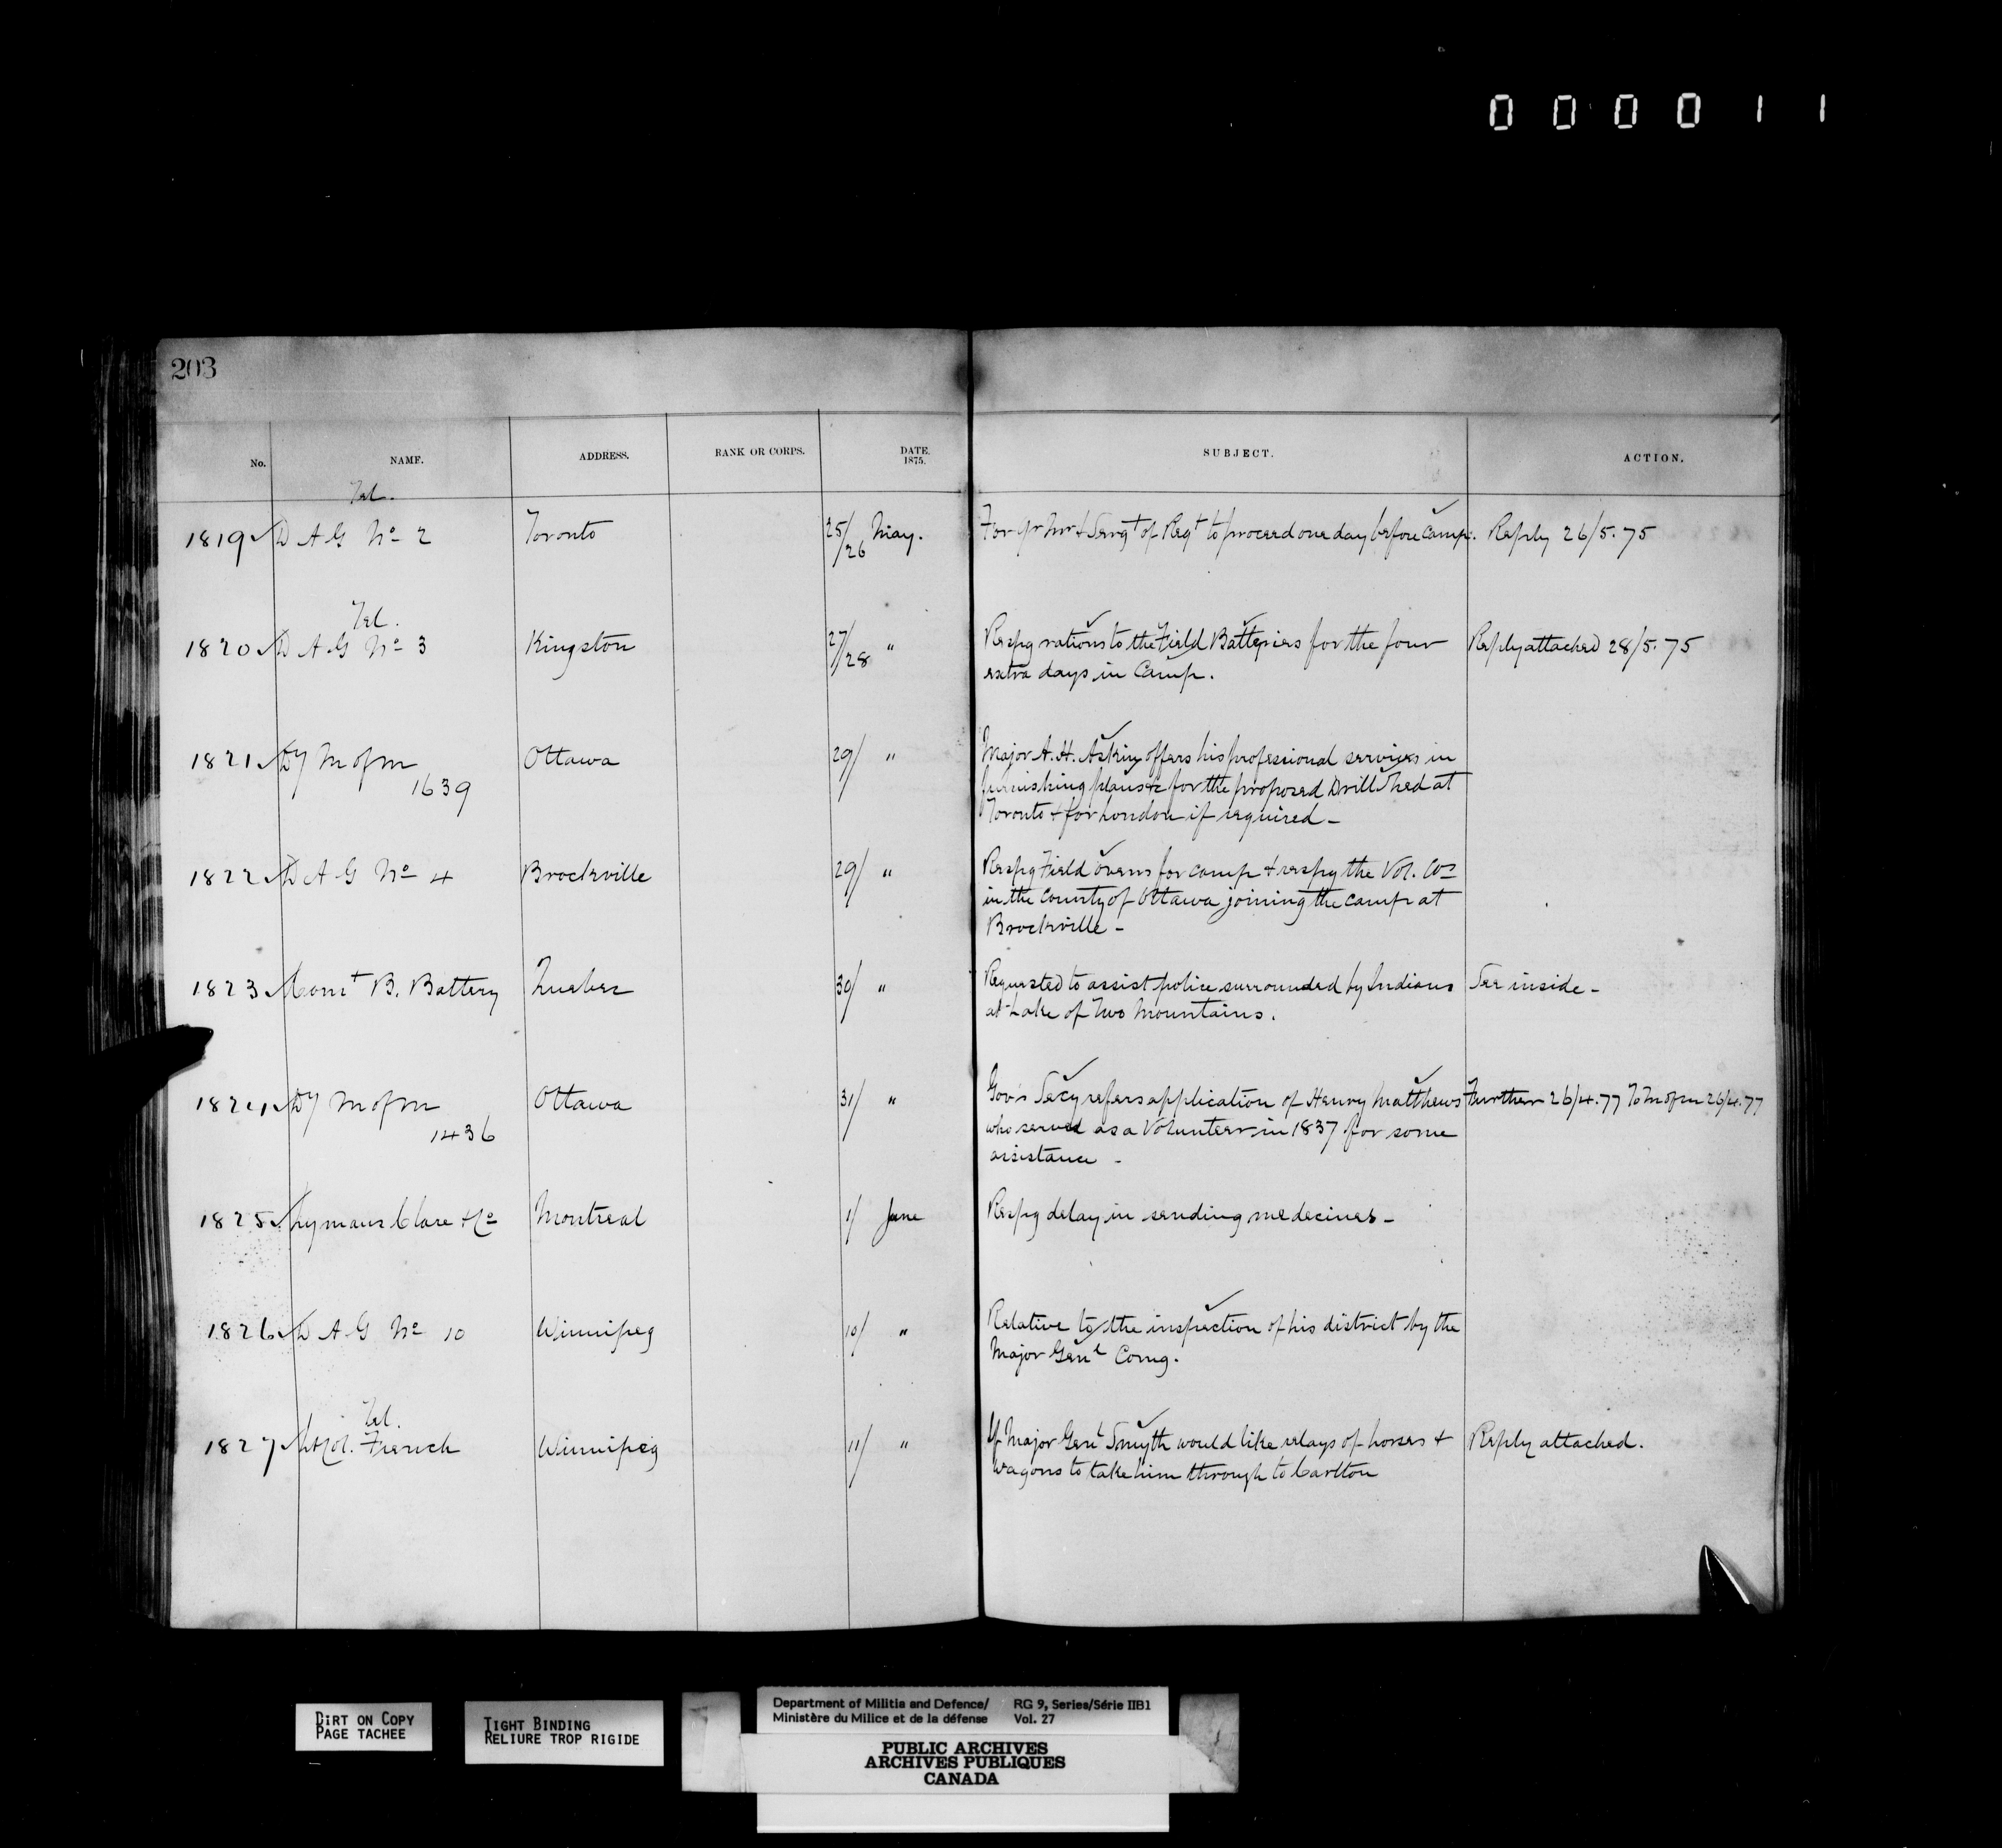 000011
203
No. NAME. ADDRESS. RANK OR CORPS. DATE. 1875. SUBJECT. ACTION.
Tel.
1819 D A G No 2 Toronto 25/26 May. For Qr Mr & Sergt of Regt to proceed one day before Camp. Reply 26/5.75
Tel.
1820 D A G No 3 Kingston 27/28 " Respg rations to the Field Batteries for the four Reply attached 28/5.75
extra days in Camp.
1821 Dy M of M Ottawa 29/ " Major A. H. Askin offers his professional services in
1639 furnishing plans &c for the proposed Drill Shed at
Toronto & for London if required –
1822 D A G No 4 Brockville 29/ " Respg Field Ovens for camp & respg the Vol. Cos
in the County of Ottawa joining the camp at
Brockville –
1823 Comt B. Battery Quebec 30/ " Requested to assist police surrounded by Indians See inside –
at Lake of Two Mountains.
1824 Dy M of M Ottawa 31/ " Gov's Secy refers application of Henry Matthews Further 26/4.77 To M of M 26/4.77
1436 who served as a Volunteer in 1837 for some
assistance –
1825 Lymans Clare & Co Montreal 1/ June Respg delay in sending medecines –
1826 D A G No 10 Winnipeg 10/ " Relative to the inspection of his district by the
Major Genl Comg.
Tel.
1827 Lt Col. French Winnipeg 11/ " If Major Genl Smyth would like relays of horses & Reply attached.
wagons to take him through to Carlton
DIRT ON COPY
PAGE TACHEE
TIGHT BINDING
RELIURE TROP RIGIDE
Department of Militia and Defence/ RG 9, Series/Série IIB1
Ministère du Milice et de la défense Vol. 27
PUBLIC ARCHIVES
ARCHIVES PUBLIQUES
CANADA